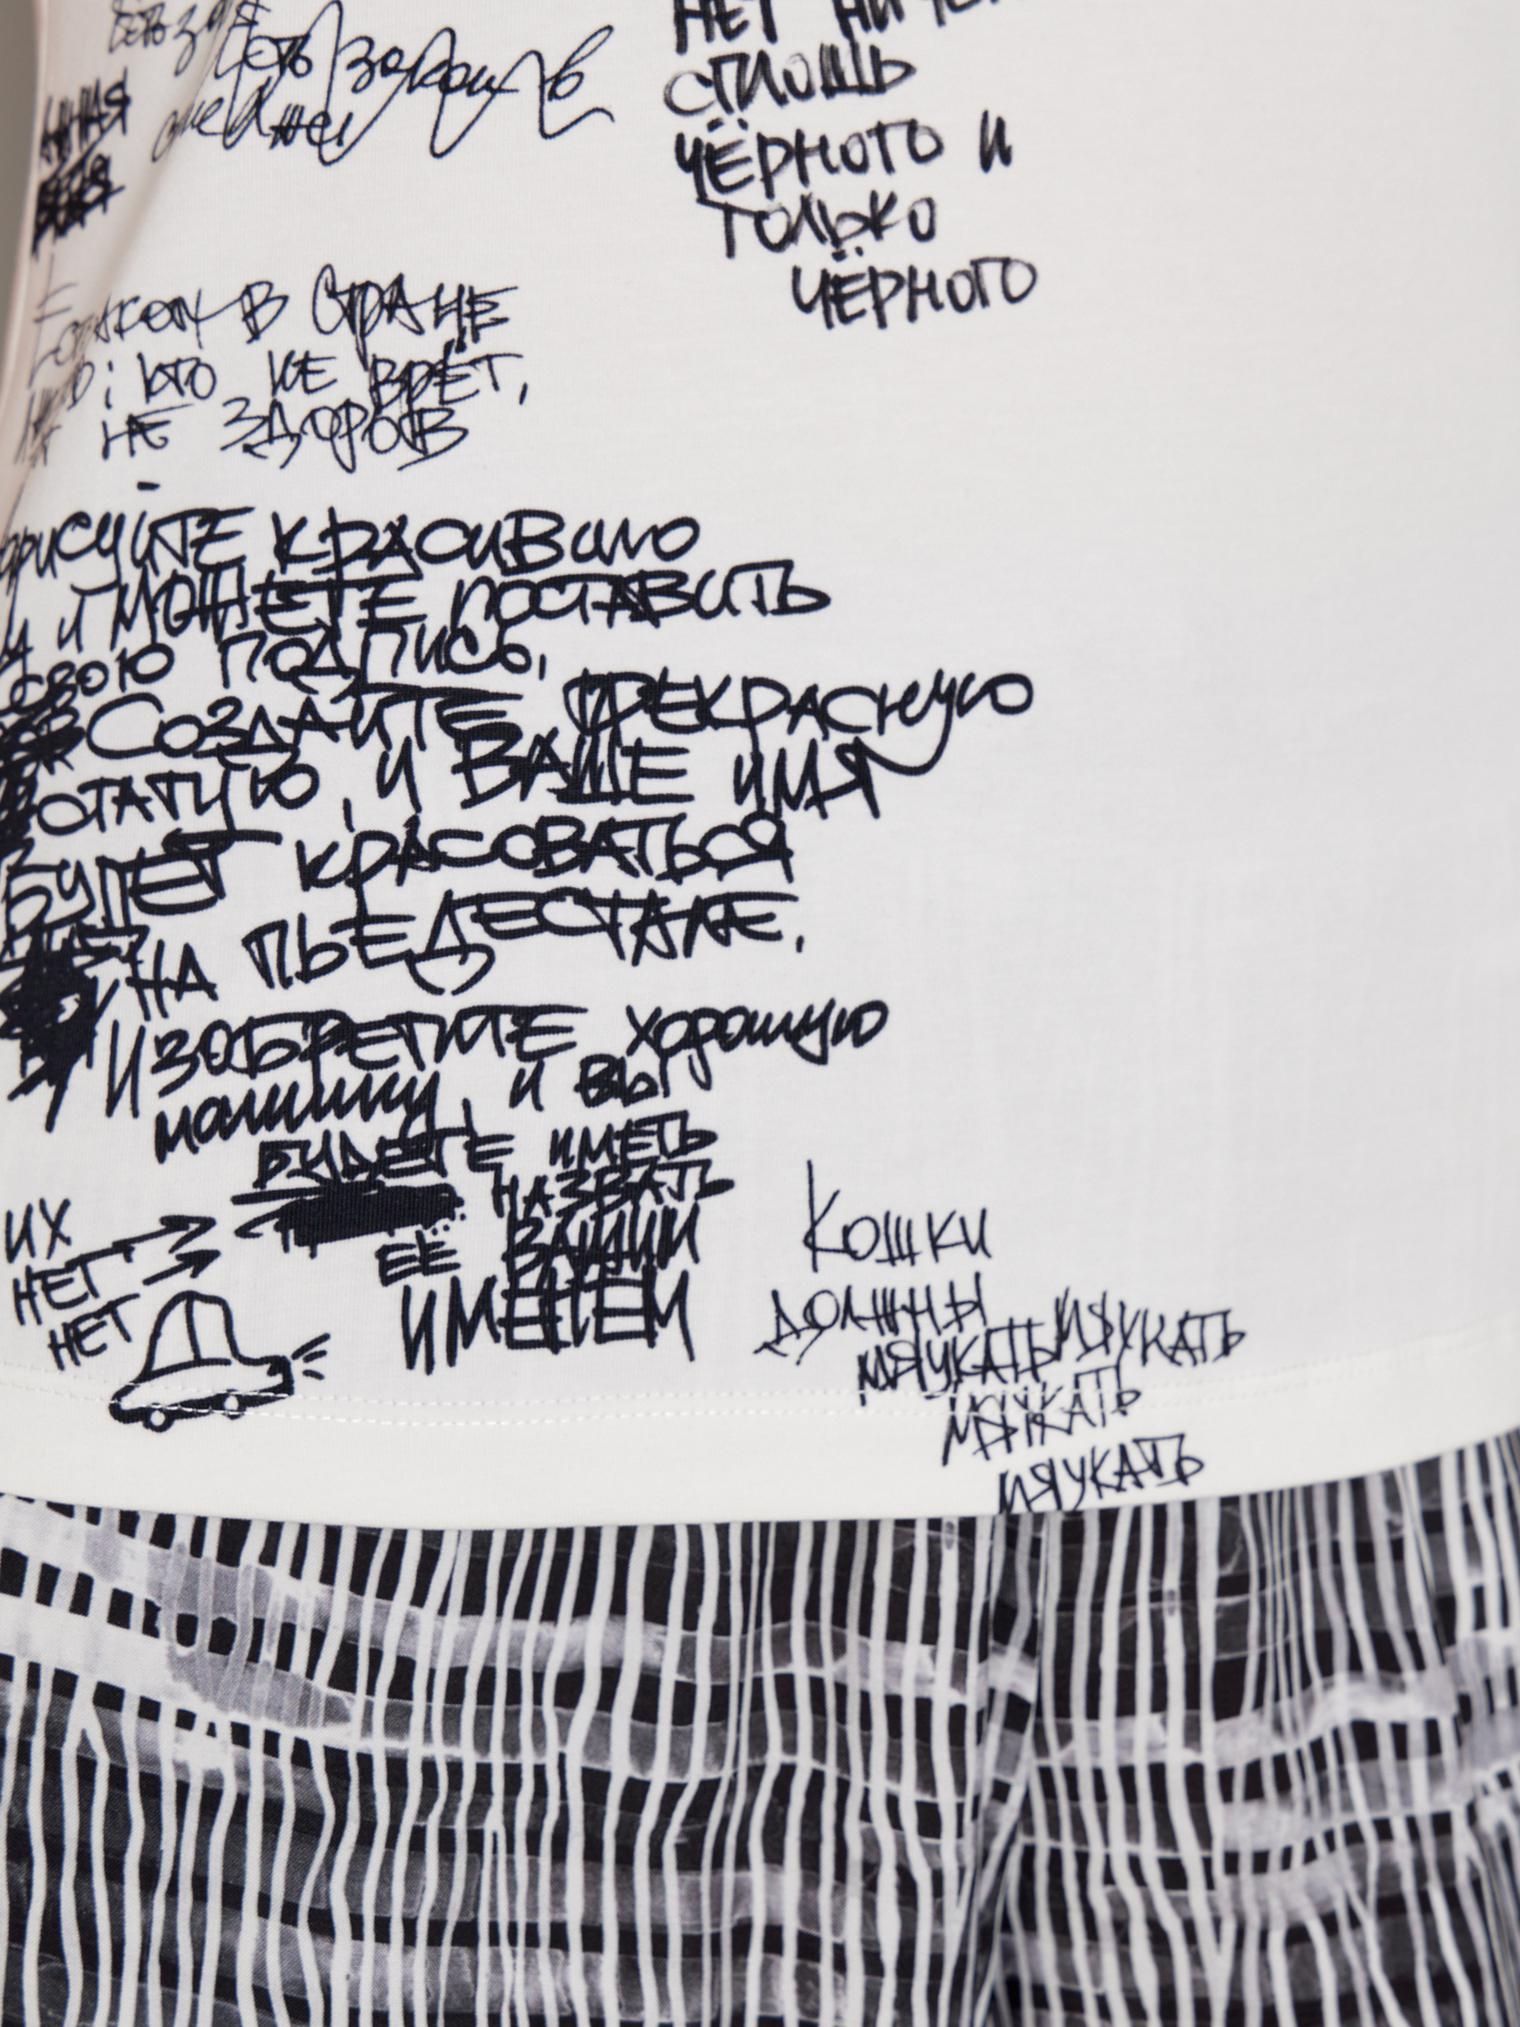 Есть закон в
НЕТ НИЧЕ
СПЛОШЬ
ЧЁРНОГО И
ТОЛЬКО
ЧЁРНОГО
закон В СТРАНЕ
: КТО НЕ ВРЁТ,
НЕ ЗДОРОВ
-
рисуйте КРАСИВО
и МОЖЕТЕ ПОСТАВИТЬ
СВОЮ ПОДПИСЬ,
СОЗДАЙТЕ ПРЕКРАСНУЮ
СТАТУЮ, И ВАШЕ ИМЯ
БУДЕТ КРАСОВАТЬСЯ
НА ПЬЕДЕСТАЛЕ,
ИЗОБРЕТИТЕ хорошую
машину, И ВЫ
БУДЕТЕ ИМЕТЬ
НАЗВАТЬ
ЕЁ ВАШИМ
ИМЕНЕМ
ИХ
НЕТ
НЕТ
КОШКИ
ДОЛЖНЫ
МЯУКАТЬ МЯУКАТЬ
МЯУКАТЬ
МЯУКАТЬ